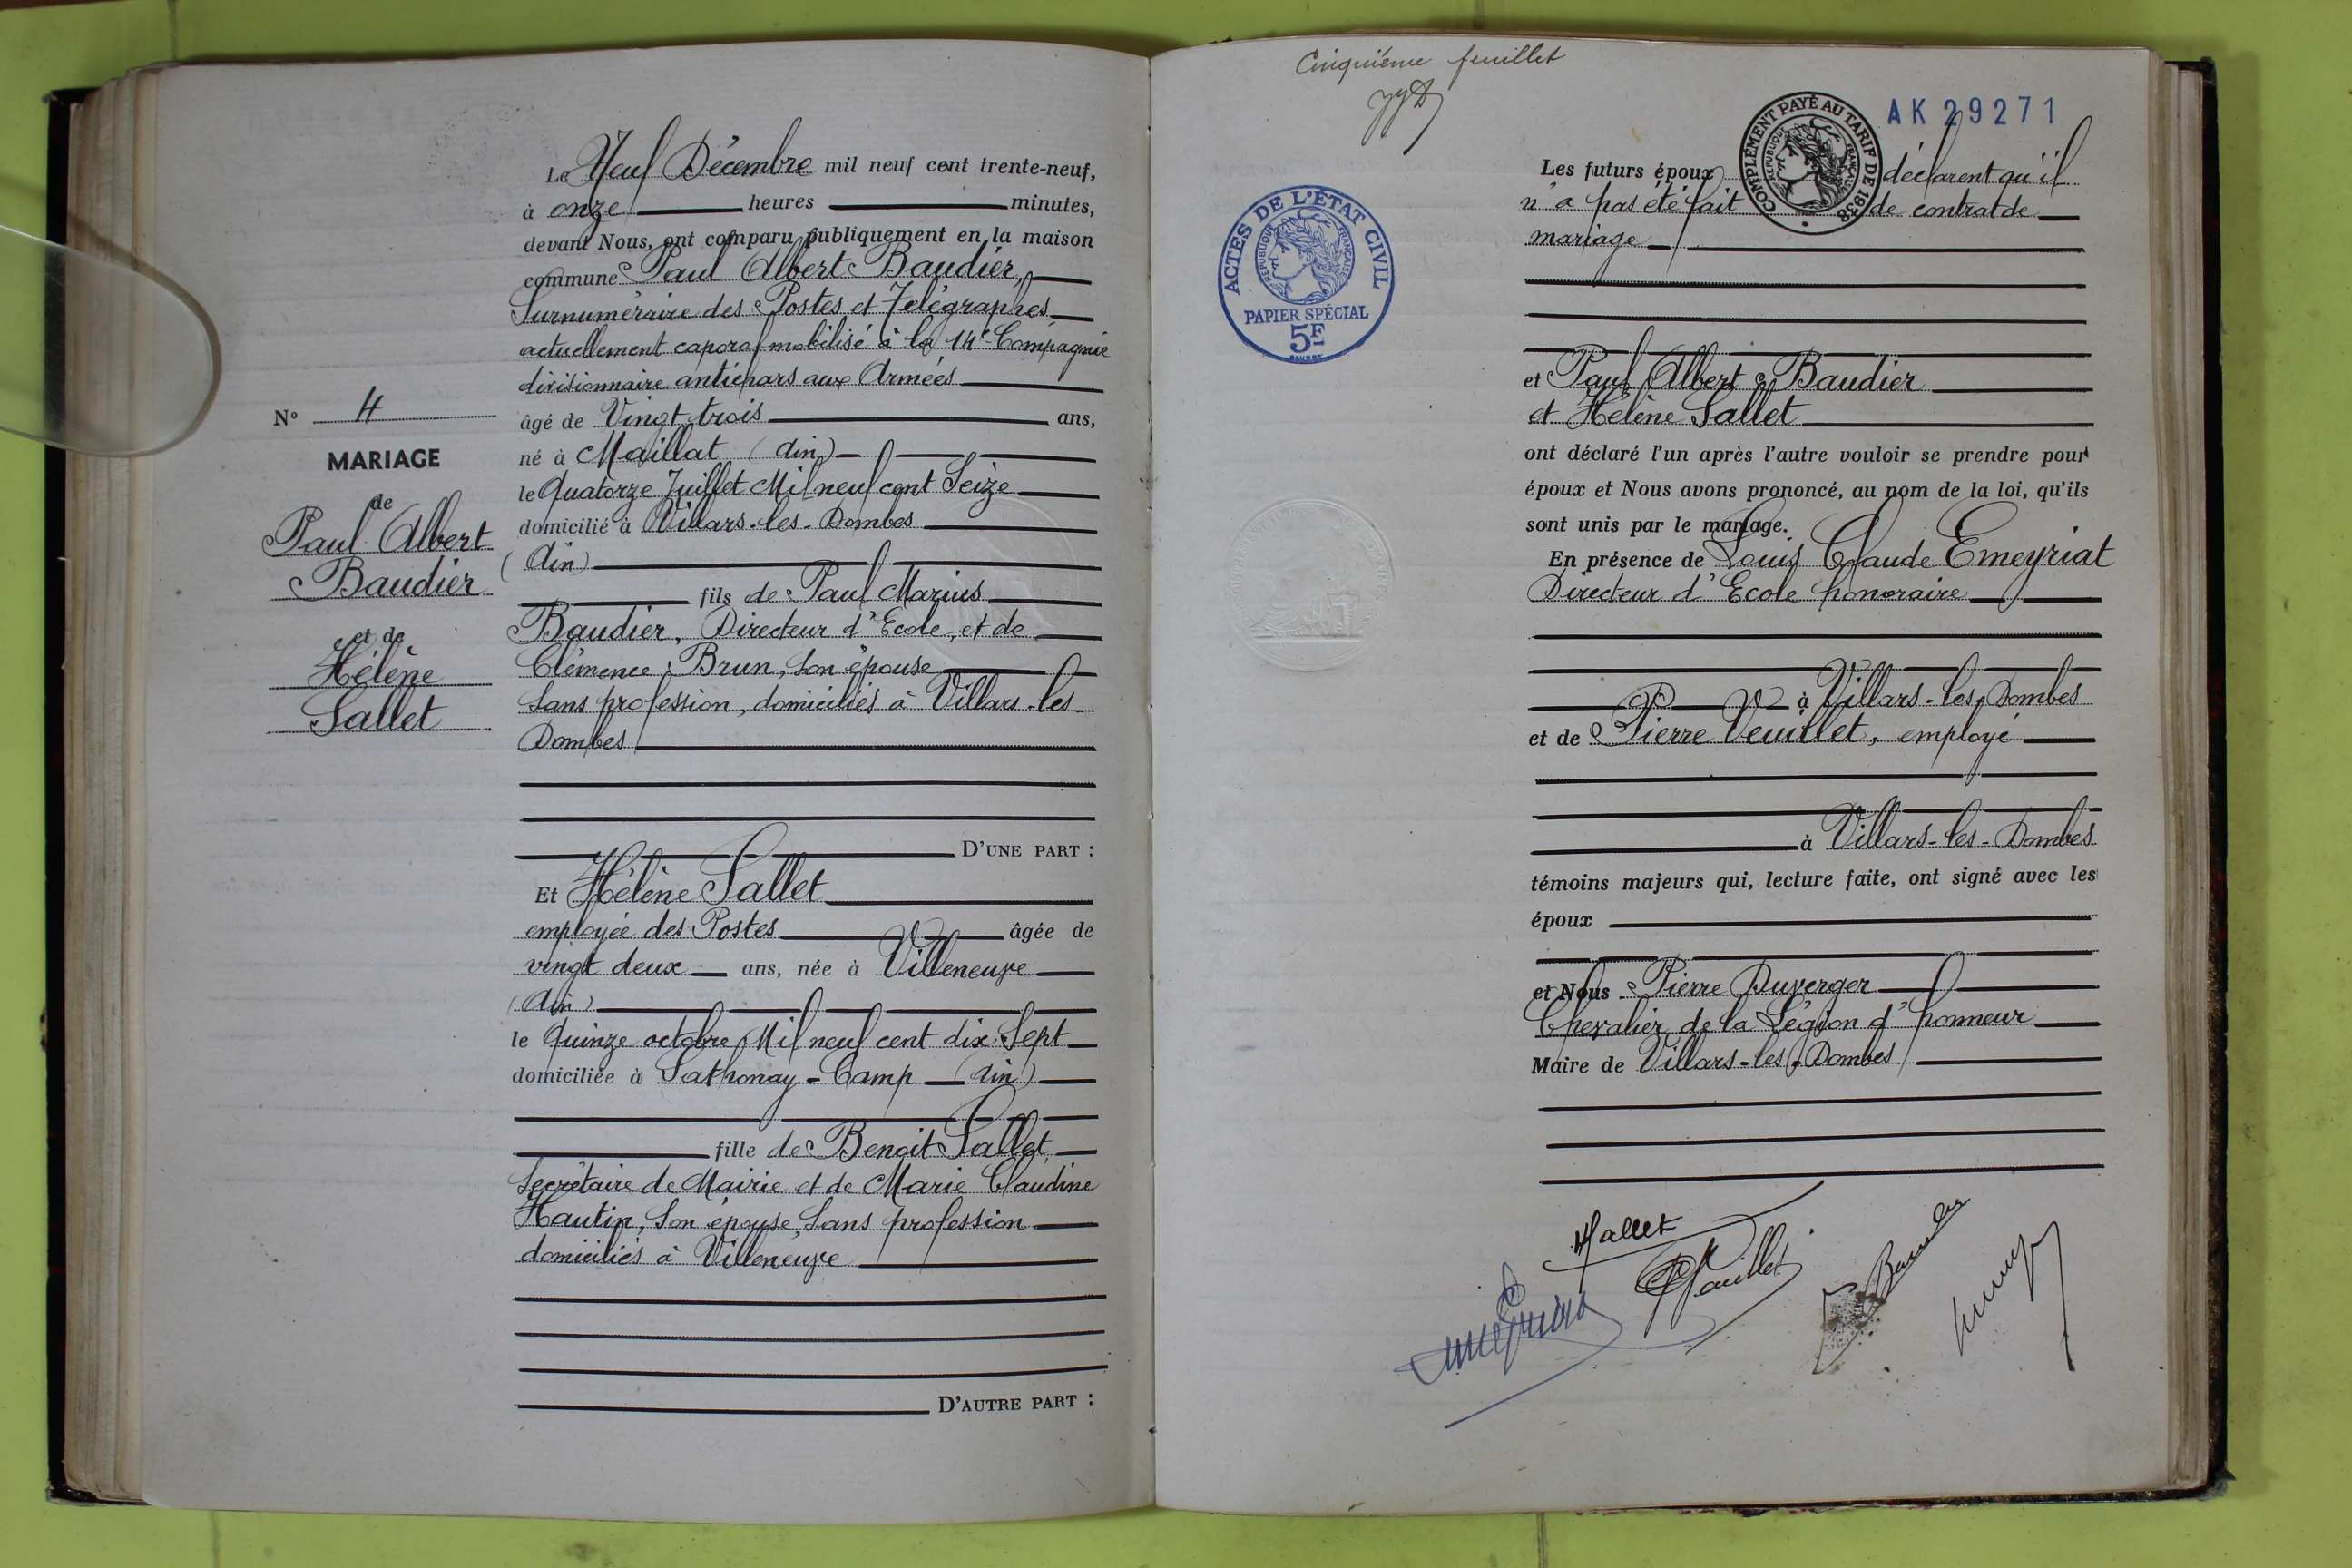 Le Neuf Décembre mil neuf cent trente-neuf,
à onze heures minutes,
devant Nous, ont comparu publiquement en la maison
commune Paul Albert Baudier,
Surnuméraire des Postes et Télégraphes
actuellement caporal mobilisé à la 14e Compagnie
divisionnaire antichars aux Armées
âgé de Vingt trois ans,
né à Maillat (Ain)
le Quatorze Juillet Mil neuf cent Seize
domicilié à Villars-les-Dombes
(Ain)
fils de Paul Marius
Baudier, Directeur d'Ecole, et de
Clémence Brun, son épouse
sans profession, domiciliés à Villars-les-
Dombes
D'UNE PART :
Et Hélène Sallet
employée des Postes âgée de
vingt deux ans, née à Villeneuve
(Ain)
le Quinze octobre Mil neuf cent dix-Sept
domiciliée à Sathonay-Camp (Ain)
fille de Benoit Sallet,
Secrétaire de Mairie et de Marie Claudine
Hautin, son épouse, sans profession
domiciliés à Villeneuve
D'AUTRE PART :
N° 4
MARIAGE
de
Paul Albert
Baudier
et de
Hélène
Sallet
Cinquième feuillet
AK 29271
COMPLÉMENT PAYÉ AU TARIF DE 1938
RÉPUBLIQUE FRANÇAISE
ACTES DE L'ÉTAT CIVIL
RÉPUBLIQUE FRANÇAISE
PAPIER SPÉCIAL
5F
Les futurs époux déclarent qu'il
n'a pas été fait de contrat de
mariage
et Paul Albert Baudier
et Hélène Sallet
ont déclaré l'un après l'autre vouloir se prendre pour
époux et Nous avons prononcé, au nom de la loi, qu'ils
sont unis par le mariage.
En présence de Louis Claude Emeyriat
Directeur d'Ecole honoraire
à Villars-les-Dombes
et de Pierre Veuillet, employé
à Villars-les-Dombes
témoins majeurs qui, lecture faite, ont signé avec les
époux
et Nous Pierre Duverger
Chevalier de la Légion d'honneur
Maire de Villars-les-Dombes
HSallet